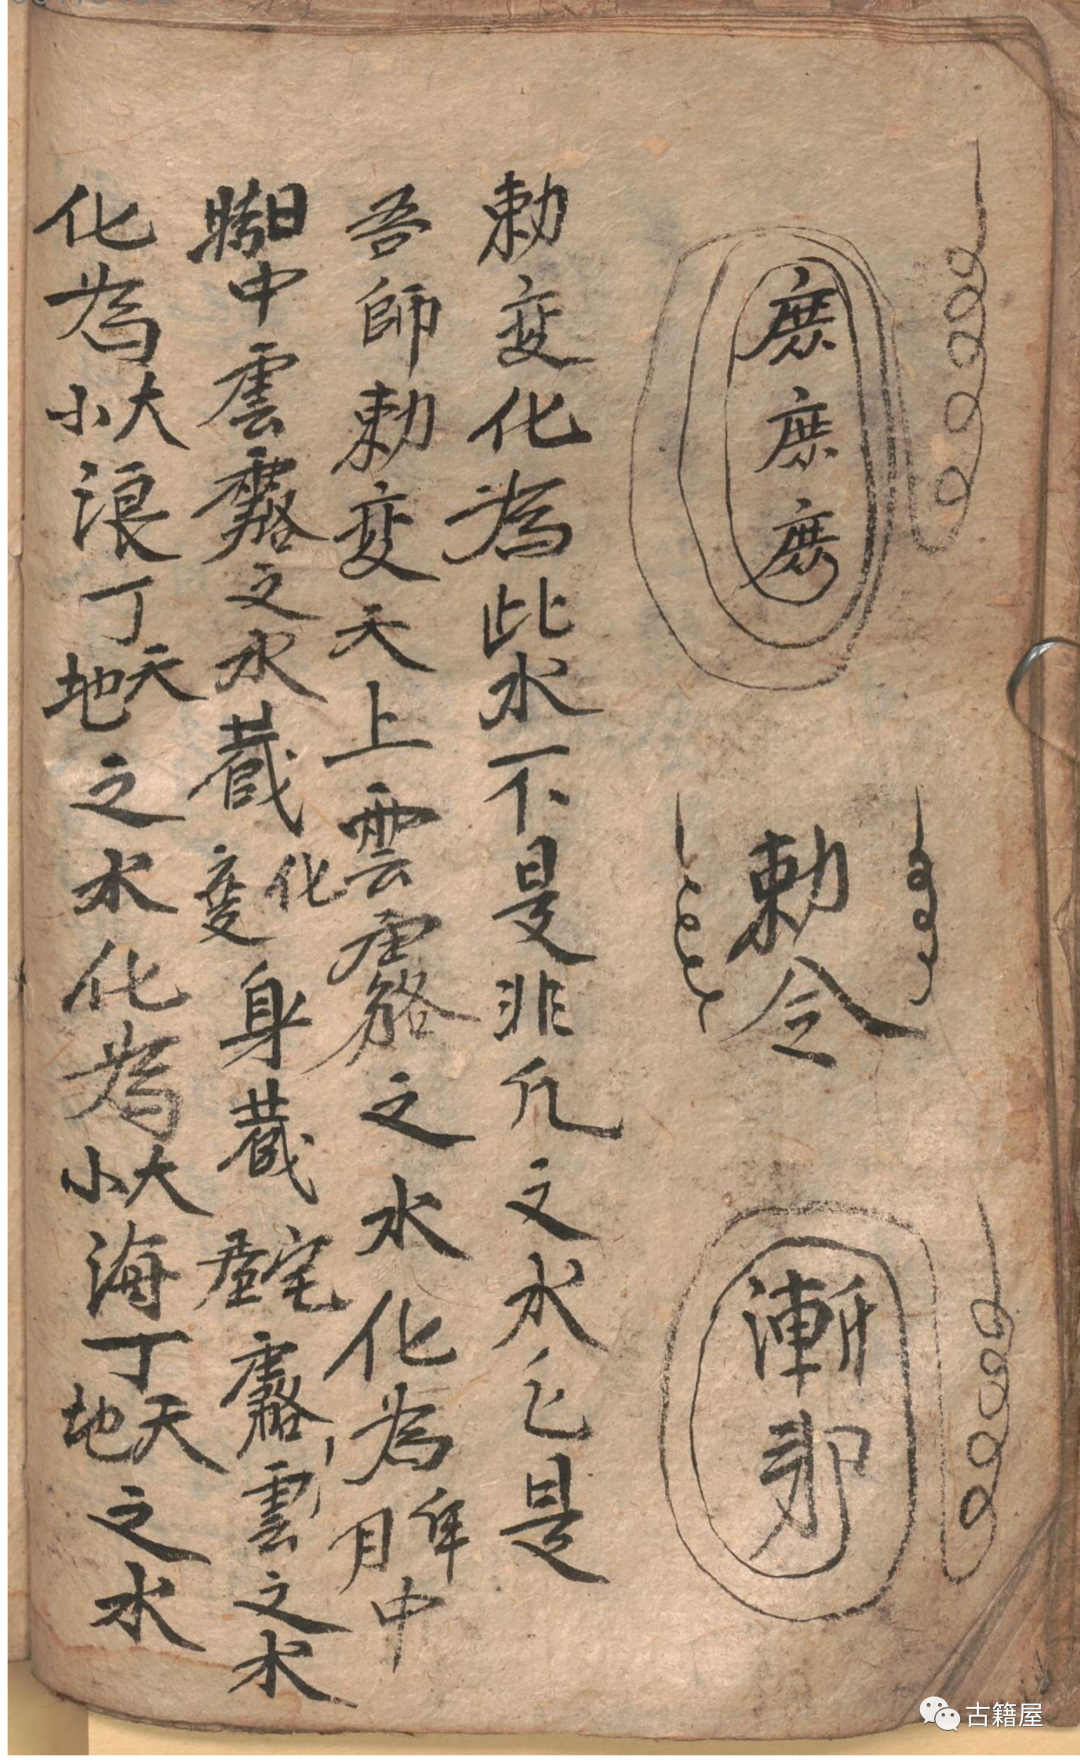 庶庶庶
勅令
漸耶
勅变化為此水不是非凡之水乜是
吾師勅变天上雲露之水化為年月中
時日中雲露之水藏化变身藏宅露雲之水
化為大小浪丁天地之水化為大小海丁天地之水
古籍屋